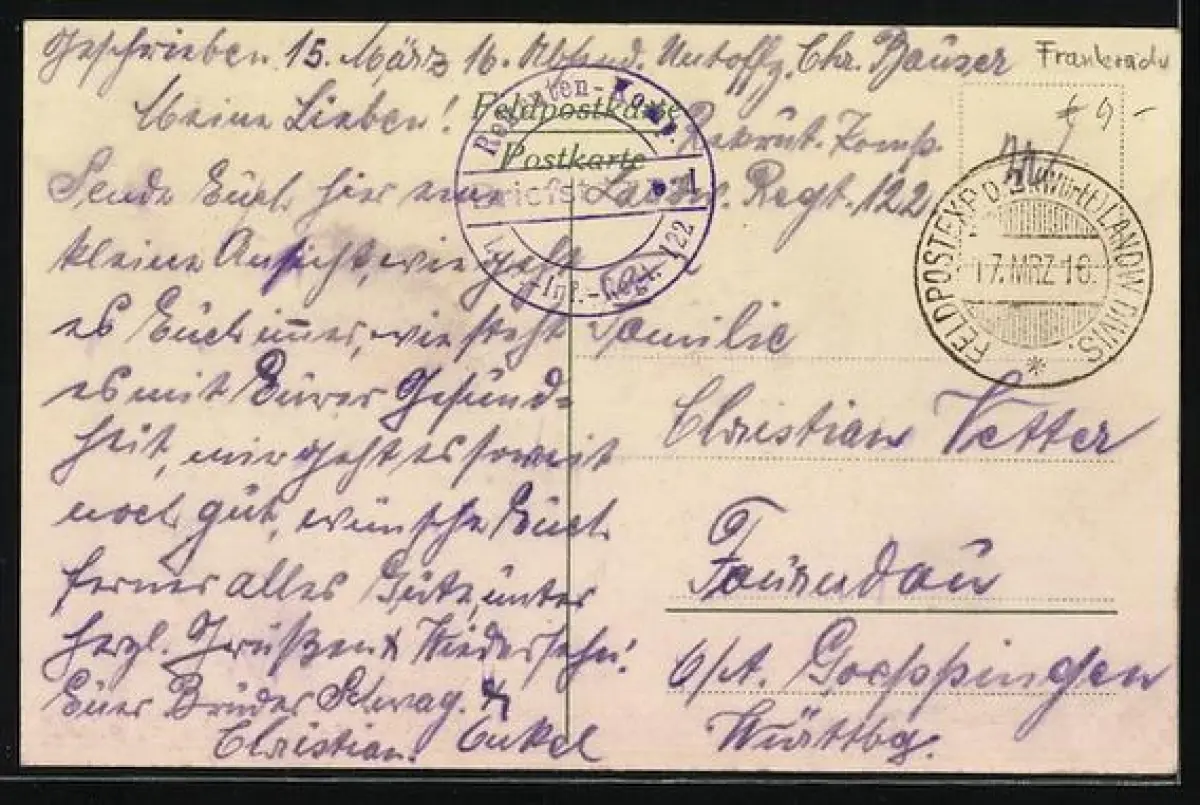 Geschrieben 15. März 16. Absend. Untoffz. Chr. Bauzer
Frankreich
Meine Lieben!
Feldpostkarte
Postkarte
Rekrut. Komp.
Landw. Regt. 122
Sende Euch hier eine
kleine Ansicht, wie geht
es Euch immer, wie steht
es mit Eurer Gesund-
heit, mir geht es soweit
noch gut, wünsche Euch
ferner alles Gute, unter
herzl. Grüßen & Wiedersehn!
Euer Bruder Schwag. &
Christian. Onkel
Rekruten-Komp.
Briefst
Inf.-Regt. 122
9-
FELDPOSTEXP. D. 2. K. WÜRTT. LANDW. DIVIS.
17. MRZ. 16.
Familie
Christian Vetter
Faurndau
O/A. Goeppingen
Württbg.